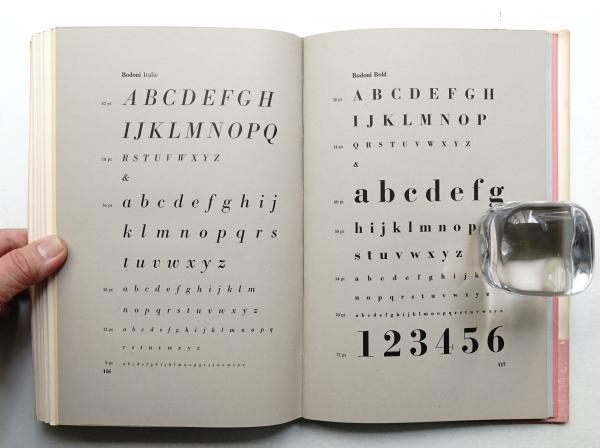 Bodoni Italic
42 pt A B C D E F G H
I J K L M N O P Q
18 pt R S T U V W X Y Z
&
36 pt a b c d e f g h i j
k l m n o p q r s
t u v w x y z
18 pt a b c d e f g h i j k l m
n o p q r s t u v w x y z
12 pt a b c d e f g h i j k l m n o p q
r s t u v w x y z
8 pt a b c d e f g h i j k l m n o p q r s t u v w x y z
116
Bodoni Bold
A B C D E F G H
I J K L M N O P
14 pt Q R S T U V W X Y Z
&
a b c d e f g
h i j k l m n o p
s t u v w x y z
14 pt a b c d e f g h i j k l m
n o p q r s t u v w x y z
10 pt a b c d e f g h i j k l m n o p q r s t u v w x y z
72 pt 1 2 3 4 5 6
117